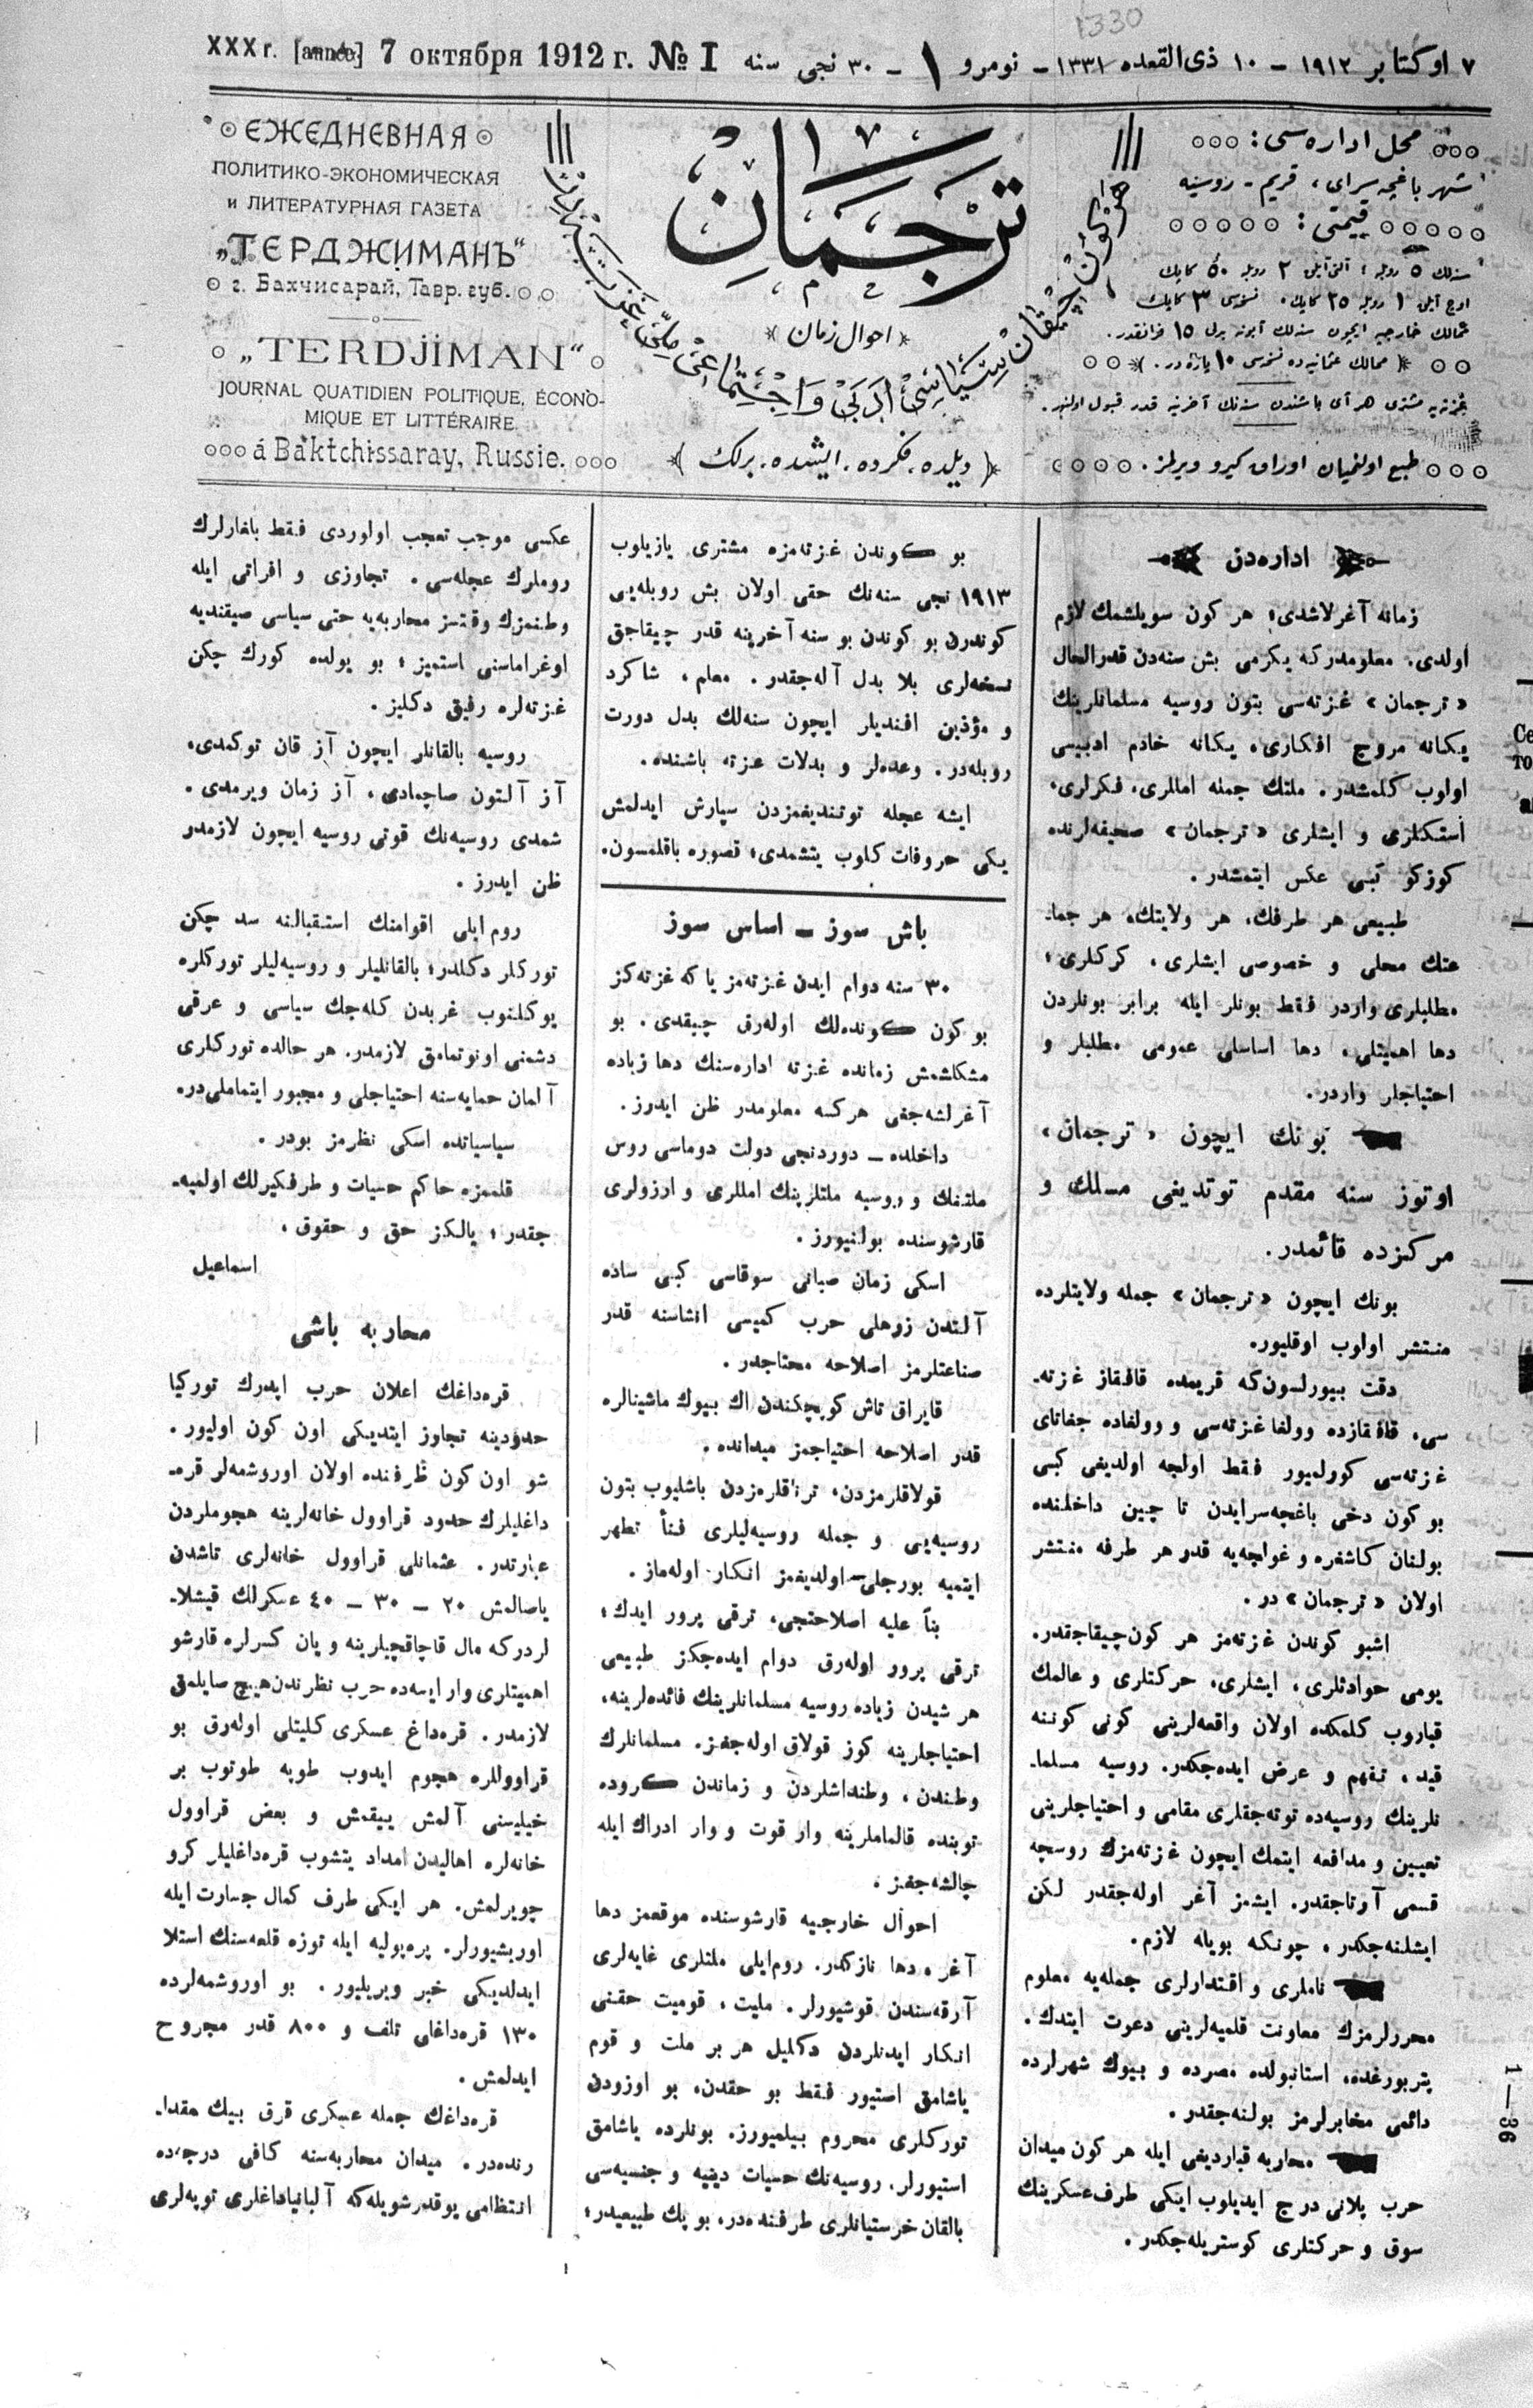 1330
XXX г. [année] 7 октября 1912 г. № I
٧ اوكتابر ١٩١٢ – ١٠ ذى القعده ١٣٣١ – نومرو ١ – ٣٠ نجى سنه
ЕЖЕДНЕВНАЯ
ПОЛИТИКО-ЭКОНОМИЧЕСКАЯ
и ЛИТЕРАТУРНАЯ ГАЗЕТА
„ТЕРДЖИМАНЪ“
г. Бахчисарай, Тавр. губ.
„TERDJIMAN“
JOURNAL QUATIDIEN POLITIQUE, ÉCONO-
MIQUE ET LITTÉRAIRE.
á Baktchissaray, Russie.
ترجمان
احوال زمان
هر كون چيقان سياسى، ادبى و اجتماعى ملى غزته
﴿ ديلده، فكرده، ايشده، برلك ﴾
محل اداره سى:
شهر باغچه سراى، قريم - روسيه
قيمتى:
سنه لك ٥ روبله؛ آلتى آيلق ٢ روبله ٥٠ كاپك
اوچ آيلق ١ روبله ٢٥ كاپك، نسخه سى ٣ كاپك
ممالك خارجيه ايچون سنه لك آبونه بدلى ١٥ فرانقدر.
ممالك عثمانيه ده نسخه سى ١٠ پاره در.
غزته يه مشترى هر آى باشندن سنه نك آخرينه قدر قبول اولنور.
طبع اولنميان اوراق كيرو ويرلمز.
اداره‌دن
زمانه آغرلاشدى؛ هر كون سويلشمك لازم
اولدى. معلومدركه يكرمى بش سنه‌دن قدرالحال
«ترجمان» غزته‌سى بتون روسيه مسلمانلرينك
يكانه مروج افكارى، يكانه خادم ادبيسى
اولوب كلمشدر. ملتك جمله امللرى، فكرلرى،
استكلرى و ايشلرى «ترجمان» صحيفه‌لرنده
كوزكو كبى عكس ايتمشدر.
طبيعى هر طرفك، هر ولايتك، هر جما-
عتك محلى و خصوصى ايشلرى، كركلرى؛
مطلبلرى واردر فقط بونلر ايله برابر بونلردن
دها اهميتلى، دها اساسلى عمومى مطلبلر و
احتياجلر واردر.
بونك ايچون «ترجمان»
اوتوز سنه مقدم توتديغى مسلك و
مركزده قائمدر.
بونك ايچون «ترجمان» جمله ولايتلرده
منتشر اولوب اوقليور.
دقت بيورلسون‌كه قريمده قافقاز غزته-
سى، قافقازده وولغا غزته‌سى و وولغاده جغاتاى
غزته‌سى كورلميور فقط اولجه اولديغى كبى
بو كون دخى باغچه‌سرايدن تا چين داخلنده
بولنان كاشغره و غولجه‌يه قدر هر طرفه منتشر
اولان «ترجمان» در.
اشبو كوندن غزته‌مز هر كون چيقاجقدر.
يومى حوادثلرى، ايشلرى، حركتلرى و عالمك
قباروب كلمكده اولان واقعه‌لرينى كونى كوننه
قيد، تفهم و عرض ايده‌جكدر. روسيه مسلما-
نلرينك روسيه‌ده توته‌جقلرى مقامى و احتياجلرينى
تعيين و مدافعه ايتمك ايچون غزته‌مزك روسجه
قسمى آرتاجقدر. ايشمز آغر اوله‌جقدر لكن
ايشلنه‌جكدر، چونكه بويله لازم.
ناملرى و اقتدارلرى جمله‌يه معلوم
محررلرمزك معاونت قلميه‌لرينى دعوت ايتدك.
پتربورغده، استانبولده مصرده و بيوك شهرلرده
دائمى مخابرلرمز بولنه‌جقدر.
محاربه قبارديغى ايله هر كون ميدان
حرب پلانى درج ايديلوب ايكى طرف عسكرينك
سوق و حركتلرى كوستريله‌جكدر.
بو كوندن غزته‌مزه مشترى يازيلوب
١٩١٣ نجى سنه‌نك حقى اولان بش روبله‌يى
كوندرن بو كوندن بو سنه آخرينه قدر چيقاجق
نسخه‌لرى بلا بدل آله‌جقدر. معلم، شاكرد
و مؤذين افنديلر ايچون سنه‌لك بدل دورت
روبله‌در. وعده‌لر و بدلات غزته باشنده.
ايشه عجله توتنديغمزدن سپارش ايدلمش
يكى حروفات كلوب يتشمدى؛ قصوره باقلمسون.
باش سوز – اساس سوز
٣٠ سنه دوام ايدن غزته‌مز يا كه غزته‌كز
بو كون كونده‌لك اوله‌رق چيقدى. بو
مشكلشمش زمانده غزته اداره‌سنك دها زياده
آغرلشه‌جغى هركسه معلومدر ظن ايدرز.
داخلده – دوردنجى دولت دوماسى روس
ملتنك و روسيه ملتلرينك امللرى و ارزولرى
قارشوسنده بولنيورز.
اسكى زمان صبانى سوقاسى كبى ساده
آلتدن زرهلى حرب كميسى انشاسنه قدر
صناعتلرمز اصلاحه محتاجدر.
قايراق تاش كوبچكندن اك بيوك ماشينالره
قدر اصلاحه احتياجمز ميدانده.
قولاقلرمزدن، ترناقلرمزدن باشليوب بتون
روسيه‌يى و جمله روسيه‌ليلرى فنأ تطهر
ايتميه بورجلى اولديغمز انكار اوله‌ماز.
بنأ عليه اصلاحتجى، ترقى پرور ايدك؛
ترقى پرور اوله‌رق دوام ايده‌جكز طبيعى
هر شيدن زياده روسيه مسلمانلرينك فائده‌لرينه،
احتياجلرينه كوز قولاق اوله‌جغز. مسلمانلرك
وطندن، وطنداشلردن و زماندن كروده
توبنده قالماملرينه وار قوت و وار ادراك ايله
چالشه‌جغز.
احوال خارجيه قارشوسنده موقعمز دها
آغر، دها نازكدر. روم‌ايلى ملتلرى غايه‌لرى
آرقه‌سندن قوشيورلر. مليت، قوميت حقنى
انكار ايدنلردن دكلميل هر بر ملت و قوم
ياشامق استيور فقط بو حقدن، بو اوزودن
توركلرى محروم بيلميورز. بونلرده ياشامق
استيورلر. روسيه‌نك حسيات دينيه و جنسيه‌سى
بالقان خرستيانلرى طرفنده‌در، بو پك طبيعيدر؛
عكسى موجب تعجب اولوردى فقط بلغارلرك
روملرك عجله‌سى، تجاوزى و افراتى ايله
وطنمزك وقتسز محاربه‌يه حتى سياسى صيقنديه
اوغراماسنى استميز؛ بو يولده كورك چكن
غزته‌لره رفيق دكليز.
روسيه بالقانلر ايچون آز قان توكمدى،
آز آلتون صاچمادى، آز زمان ويرمدى.
شمدى روسيه‌نك قوتى روسيه ايچون لازمدر
ظن ايدرز.
روم ايلى اقوامنك استقبالنه سد چكن
توركلر دكلدر؛ بالقانليلر و روسيه‌ليلر توركلره
يوكلنوب غربدن كله‌جك سياسى و عرقى
دشمنى اونوتمامق لازمدر. هر حالده توركلرى
آلمان حمايه‌سنه احتياجلى و مجبور ايتماملى‌در.
سياسياتده اسكى نظرمز بودر.
قلممزه حاكم حسيات و طرفكيرلك اولميه-
جقدر؛ يالكز حق و حقوق.
اسماعيل
محاربه باشى
قره‌داغك اعلان حرب ايدرك توركيا
حدودينه تجاوز ايتديكى اون كون اوليور.
شو اون كون ظرفنده اولان اوروشمه‌لر قره-
داغليلرك حدود قراوول خانه‌لرينه هجوملردن
عبارتدر. عثمانلى قراوول خانه‌لرى تاشدن
ياصالمش ٢٠ – ٣٠ – ٤٠ عسكرلك قيشلا-
لردركه مال قاچاقچيلرينه و يان كسرلره قارشو
اهميتلرى وار ايسه‌ده حرب نظرندن هيچ صايلمق
لازمدر. قره‌داغ عسكرى كليتلى اوله‌رق بو
قراووللره هجوم ايدوب طوپه طوتوب بر
خيليسنى آلمش ييقمش و بعض قراوول
خانه‌لره اهاليدن امداد يتشوب قره‌داغليلر كرو
چويرلمش. هر ايكى طرف كمال جسارت ايله
اوريشيورلر. پره‌پوليه ايله توزه قلعه‌سنك استلا
ايدلديكى خبر ويريليور. بو اوروشمه‌لرده
١٣٠ قره‌داغلى تلف و ٨٠٠ قدر مجروح
ايدلمش.
قره‌داغك جمله عسكرى قرق بيك مقدا-
رنده‌در. ميدان محاربه‌سنه كافى درجه‌ده
انتظامى يوقدر شويله‌كه آلبانيا داغلرى توپه‌لرى
1—36